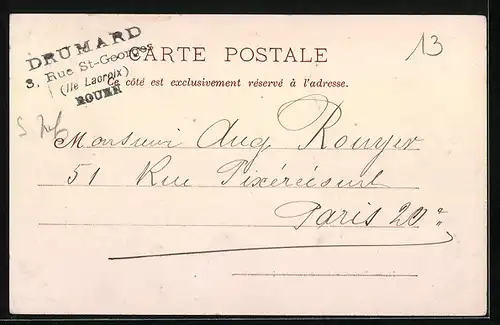 DRUMARD
3, Rue St-Georges
(Ile Lacroix)
ROUEN
CARTE POSTALE
Ce côté est exclusivement réservé à l'adresse.
13
Monsieur Aug. Rouyer
51 Rue Pixérécourt
Paris 20e